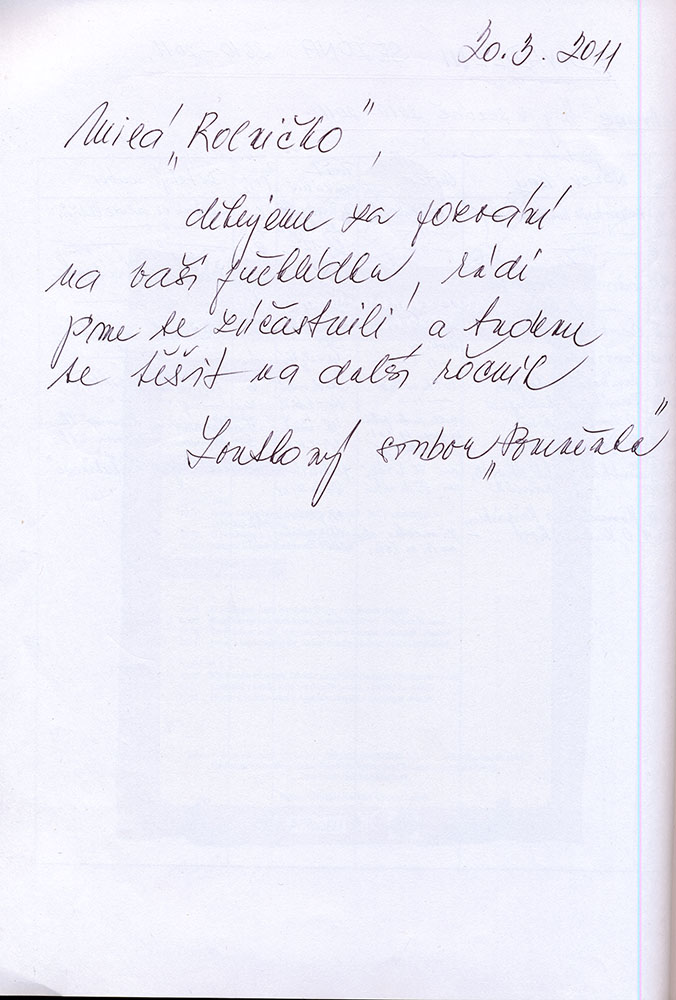 20.3.2011
Milá „Rolničko",
děkujeme za pozvání
na vaši přehlídku, rádi
jsme se zúčastnili a budeme
se těšit na další ročník
Loutkový soubor „Pomněnka"